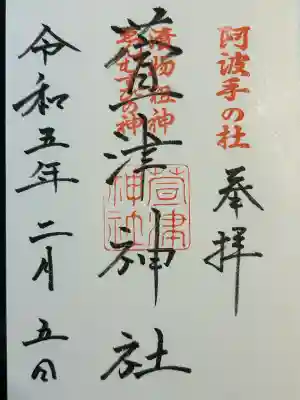 阿波手の杜
奉拝
漬物祖神
むすびの神
萱津神社
萱津神社
令和五年二月五日